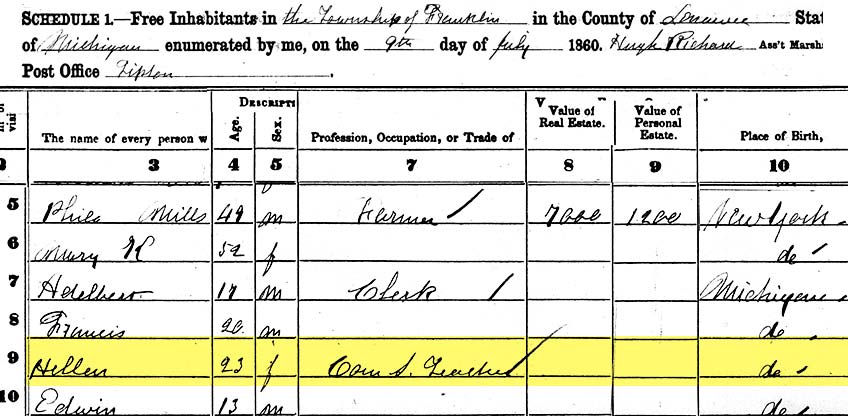 SCHEDULE 1.—Free Inhabitants in the Township of Franklin in the County of Lenawee Stat
of Michigan enumerated by me, on the 9th day of July 1860. Hugh Richard Ass't Marsh
Post Office Tipton.
visi The name of every person w DESCRIPTI Age. Sex. Profession, Occupation, or Trade of Value of Real Estate. Value of Personal Estate. Place of Birth,
2 3 4 5 7 8 9 10
5 Philo Mills 49 m Farmer 7000 1200 New York
6 Mary K 52 f do
7 Adelbert 17 m Clerk Michigan
8 Francis 20 m do
9 Hellen 23 f Com S. Teacher do
10 Edwin 13 m do